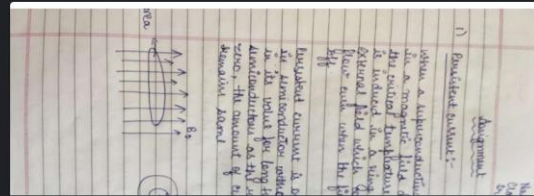 Na
Cla
En
Assignment
1) Persistent current :-
When a superconducting
in a magnetic field
the critical temperature
is induced in a ring
external field which
flow even when the
off
Persistent current is
in semiconductor without
in its value for long
semiconductors as they
zero, the amount of
remains same
B0
Area